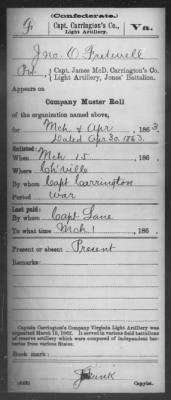 (Confederate.)
Capt. Carrington's Co.,
Light Artillery.
Va.
Jno. O. Fretwell
Pvt., Capt. James McD. Carrington's Co.
Light Artillery, Jones' Battalion.
Appears on
Company Muster Roll
of the organization named above,
for Mch & Apr, 1863.
Dated Apr 30, 1863.
Enlisted:
When Mch 15, 186
Where Ch'ville
By whom Capt Carrington
Period War
Last paid:
By whom Capt Lane
To what time Mch 1, 186
Present or absent Present
Remarks:
Captain Carrington's Company Virginia Light Artillery was
organized March 1862. It served in various field battalions
of reserve artillery which were composed of independent bat-
teries from various States.
Book mark:
Copyist.